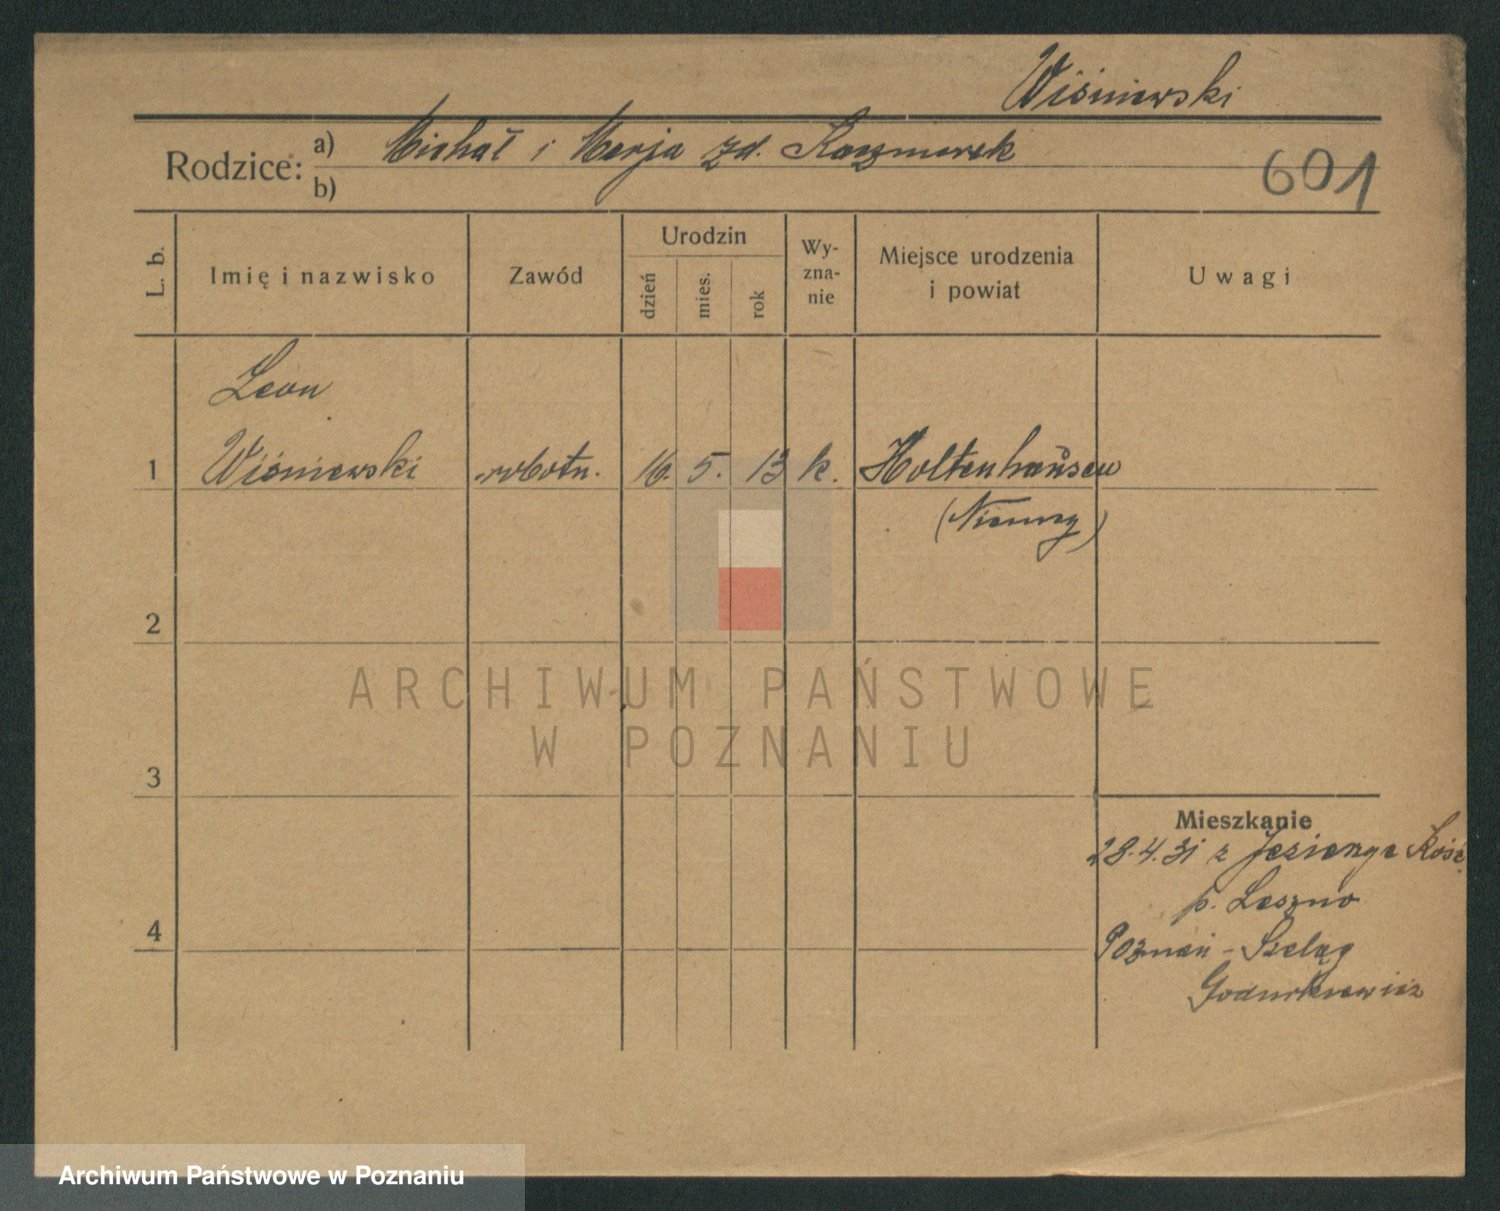 Wiśniewski
Rodzice: a) Michał i Marja zd. Kaczmarek
b)
601
L. b. Imię i nazwisko Zawód Urodzin dzień mies. rok Wy-zna-nie Miejsce urodzenia i powiat Uwagi
Leon
1 Wiśniewski robotn. 16. 5. 13 k. Holtenhausen
(Niemcy)
2
ARCHIWUM PAŃSTWOWE
W POZNANIU
3
Mieszkanie
28.4.31 z Kość
p. Leszno
4
Poznań - Szeląg
Archiwum Państwowe w Poznaniu